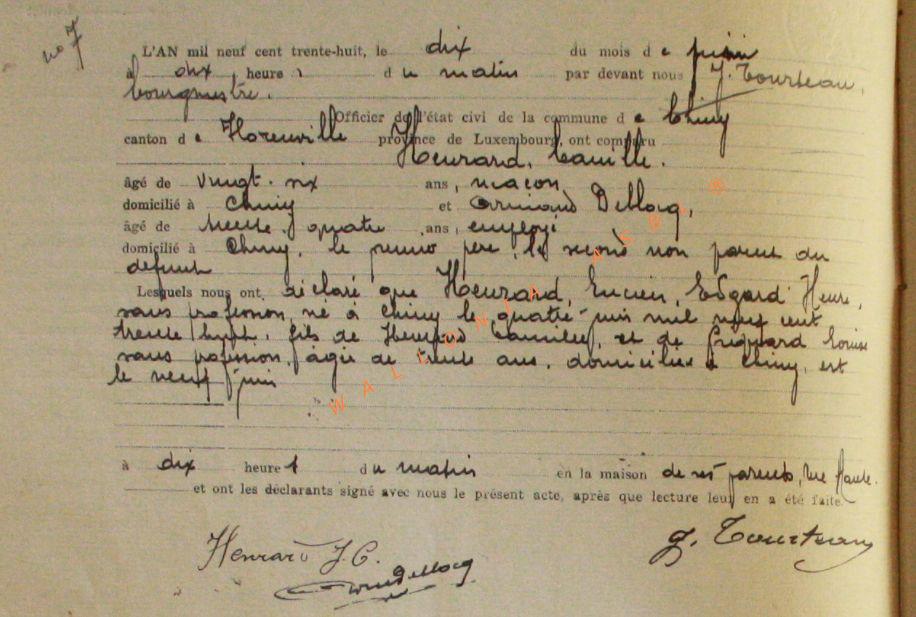 no 7
L'AN mil neuf cent trente-huit, le dix du mois de juin
à dix heures du matin par devant nous J. Tourteau,
bourgmestre.
Officier de l'état civi de la commune de Chiny
canton de Florenville province de Luxembourg, ont comparu
Henrard, Camille.
âgé de vingt-six ans, maçon
domicilié à Chiny et Armand Deblocq,
âgé de trente-quatre ans, employé
domicilié à Chiny, le premier père, le second non parent du
défunt
Lesquels nous ont déclaré que Henrard, Lucien, Edgard
sans profession, né à Chiny le quatre juin mil neuf cent
trente huit, fils de Henrard Camille, et de Louise
sans profession, âgée de trente ans, domiciliés à Chiny, est
le neuf juin
WALLONIA ASBL
à dix heures du matin en la maison de ses parents, rue Haute.
et ont les déclarants signé avec nous le présent acte, après que lecture leur en a été faite.
Henrard J. C. J. Tourteau
Deblocq